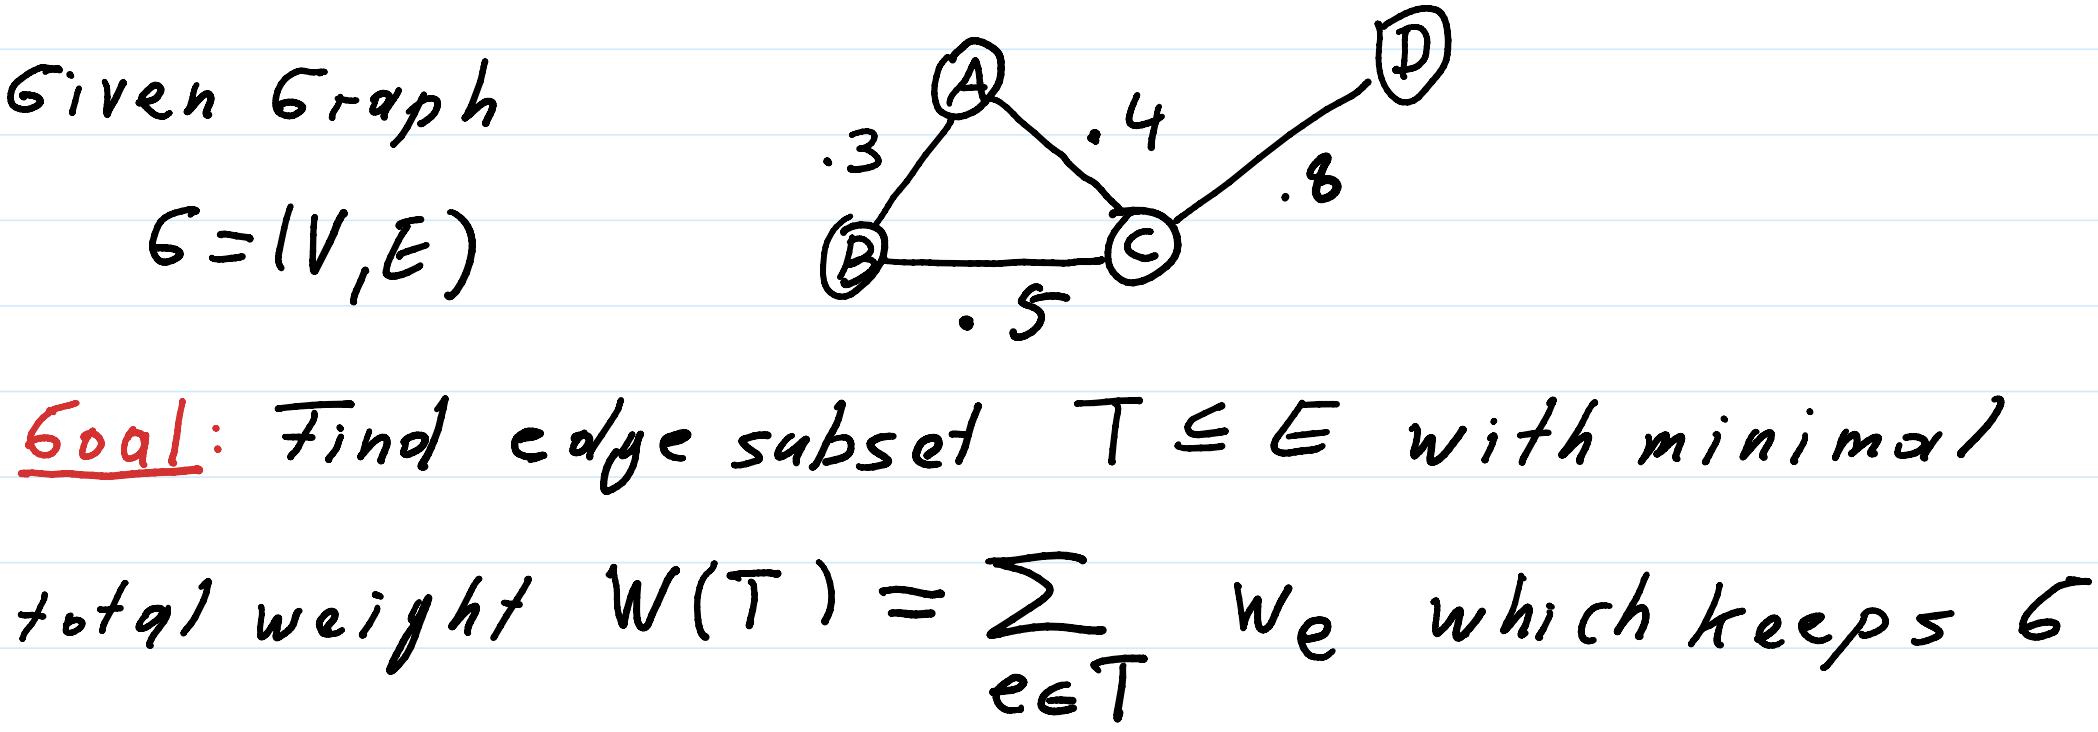 Given Graph
G=(V,E)
A
B
C
D
.3
.4
.5
.8
Goal: Find edge subset T ⊆ E with minimal
total weight W(T) = ∑ e∈T w_e which keeps G